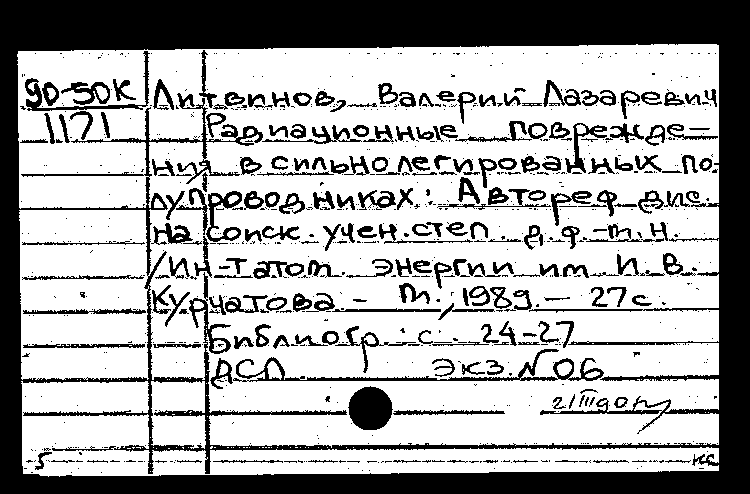 90-50К Литвинов, Валерий Лазаревич
1171 Радиационные поврежде-
ния в сильнолегированных по-
лупроводниках: Автореф. дис.
на соиск. учен. степ. д. ф.-т. н.
/Ин-т атот. энергии им. И. В.
Курчатова. - М., 1989. - 27 с.
Библиогр.: с. 24-27
ДСП. Экз. №06
21 III 90
5 кс